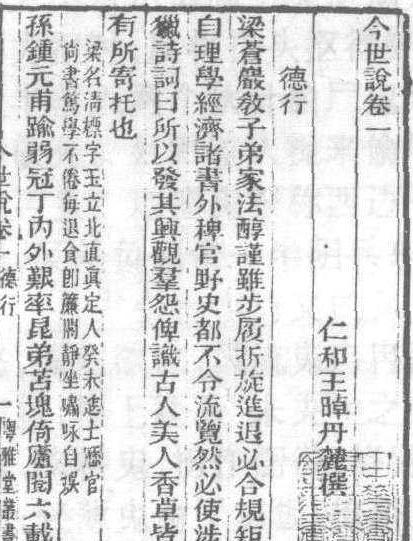 今世說卷一
仁和王晫丹麓撰
德行
梁蒼巖敎子弟家法醇謹雖步履折旋進退必合規矩
自理學經濟諸書外稗官野史都不令流覽然必使涉
獵詩詞曰所以發其興觀羣怨俾識古人美人香草皆
有所寄托也
梁名清標字玉立北直眞定人癸未進士歷官
尙書篤學不倦每退食卽簾閣靜坐嘯咏自娛
孫鍾元甫踰弱冠丁內外艱率昆弟苫塊倚廬閱六載
今世說卷一德行 一 粵雅堂叢書